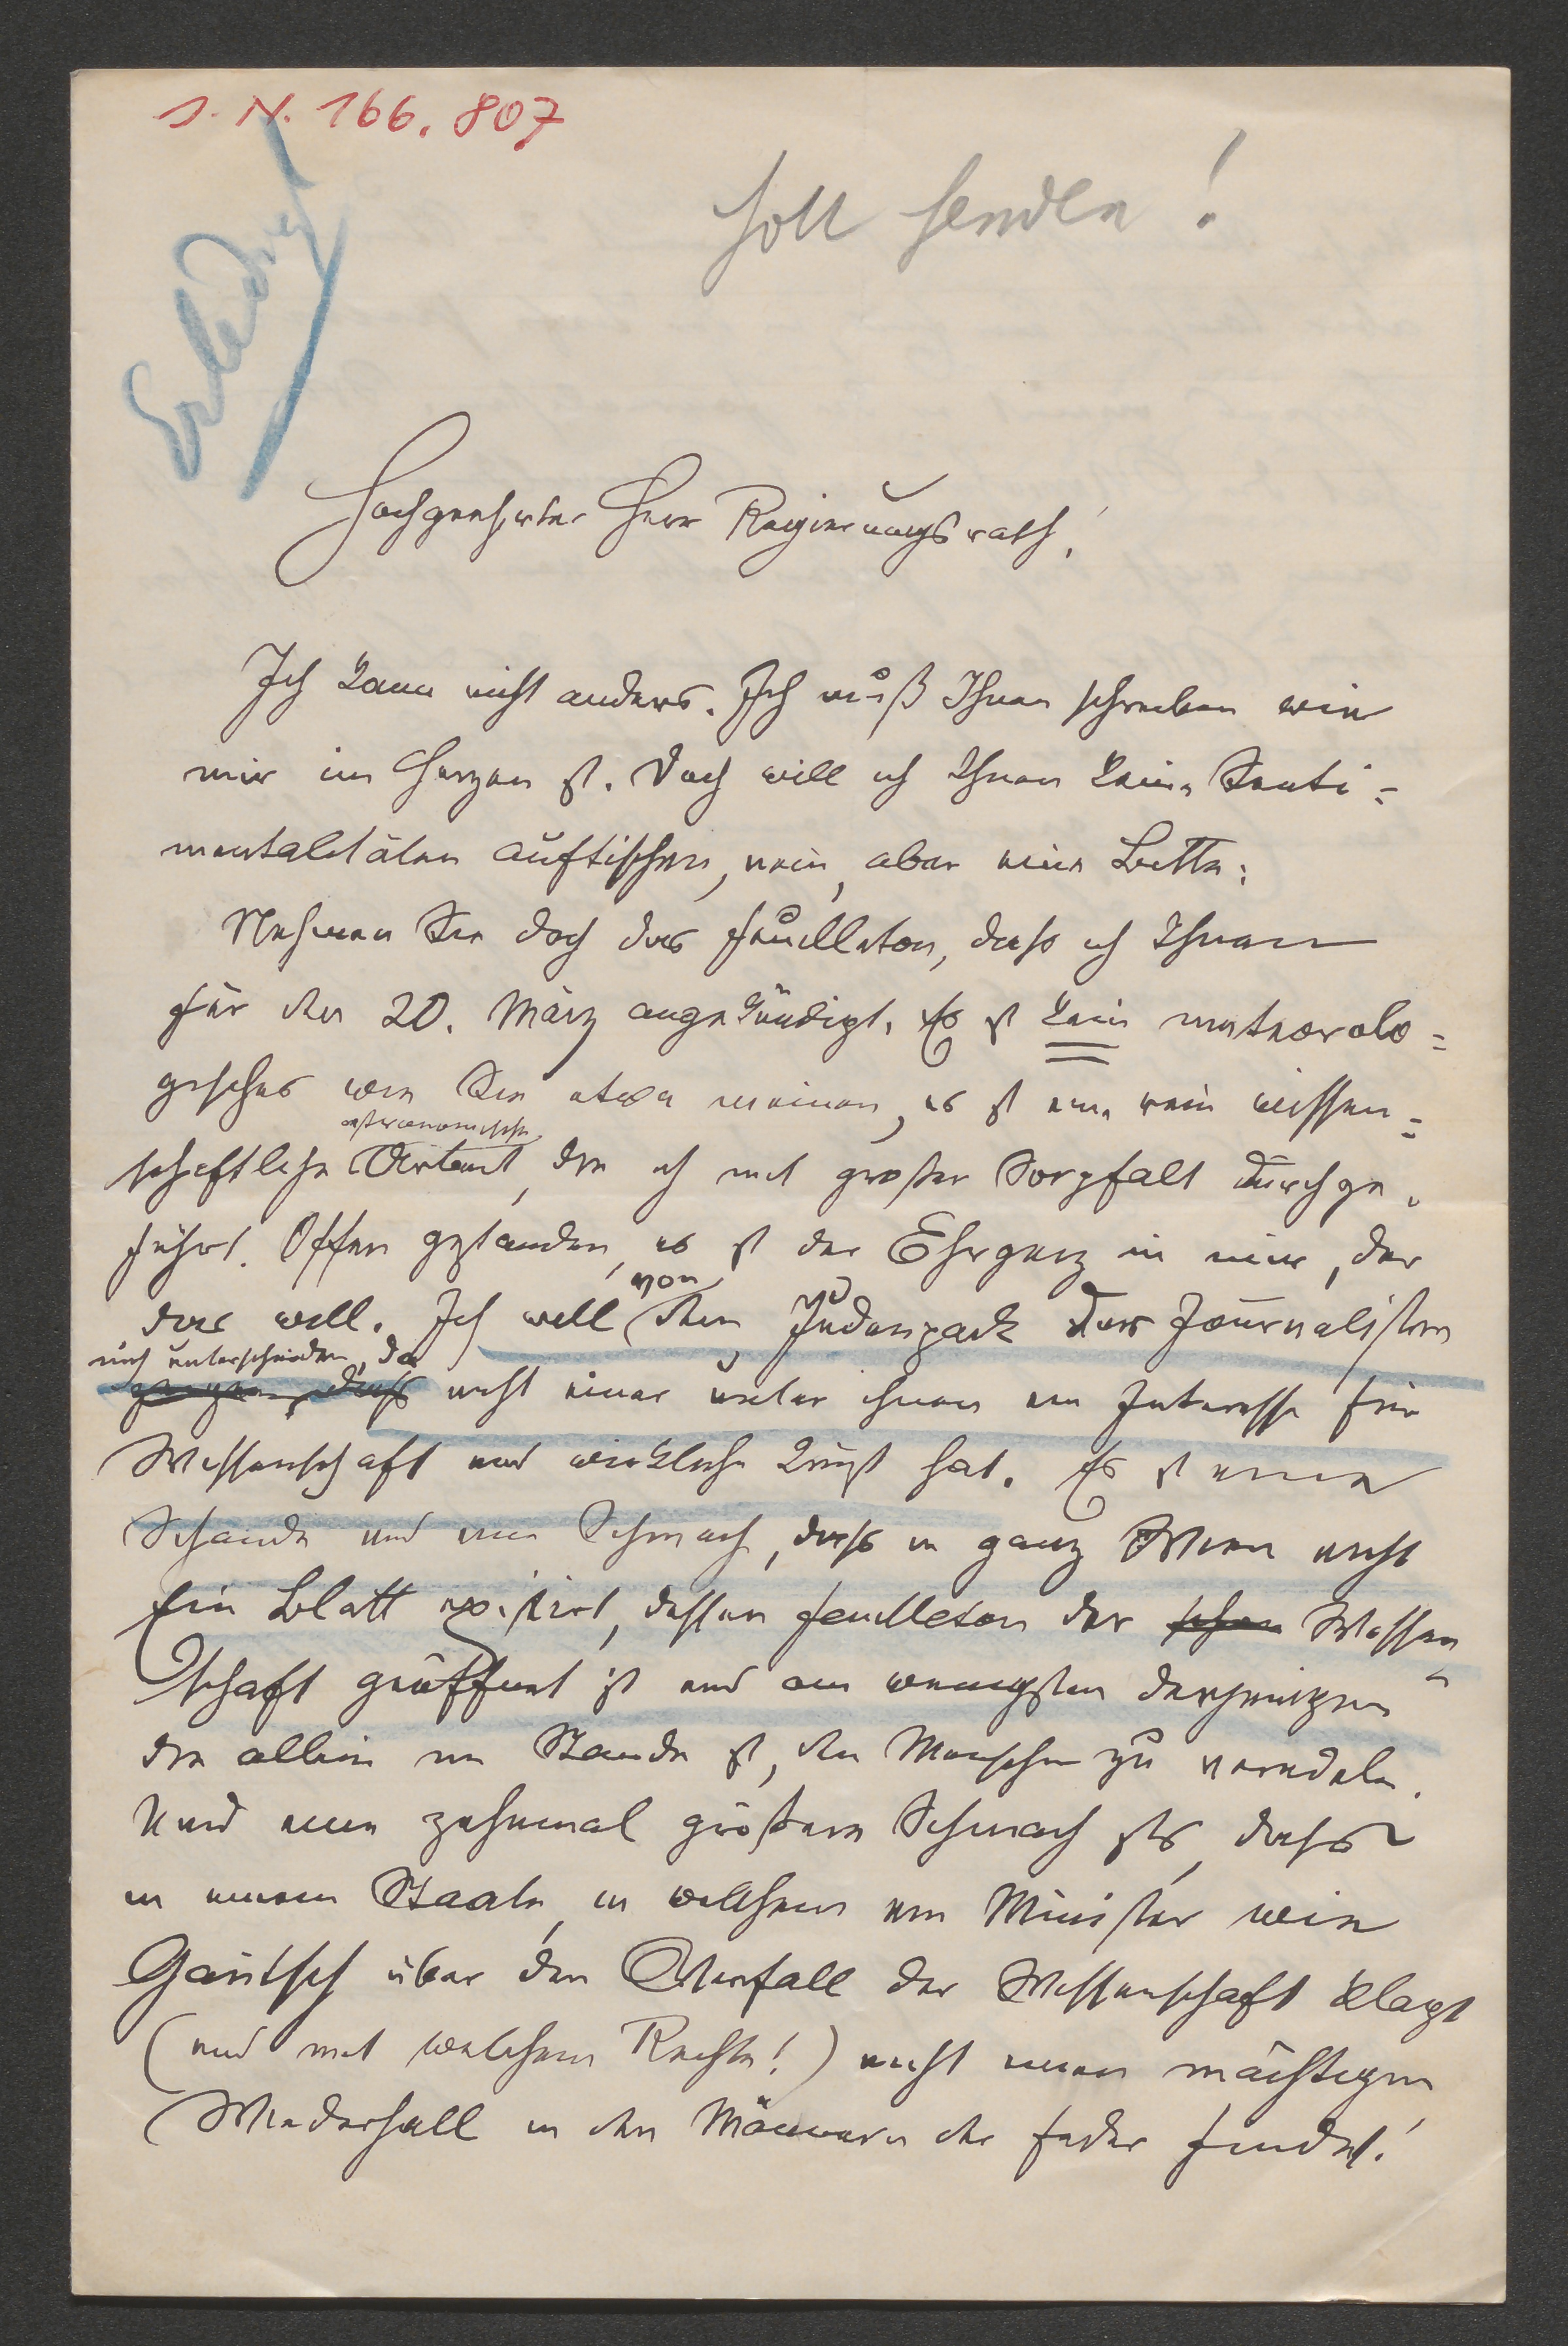 I. N. 166.807
soll senden!
Erledigt
Hochgeehrter Herr Regierungsrath!
Ich kann nicht anders. Ich muß Ihnen schreiben wie
mir im Herzen ist. Doch will ich Ihnen keine Senti=
mentalitäten auftischen, nein, aber eine Bitte:
Nehmen Sie doch das Feuilleton, dass ich Ihnen
für den 20. März angekündigt. Es ist kein meteorolo=
gisches wie Sie etwa meinen, es ist eine rein wissen=
astronomische
schaftliche Arbeit, die ich mit großer Sorgfalt durchge=
führt. Offen gestanden, es ist der Ehrgeiz in mir, der
von
das will. Ich will dem Judenpack der Journalisten
mich unterscheiden, da
zeigen, dass nicht einer unter ihnen ein Interesse für
Wissenschaft und wirkliche Kunst hat. Es ist eine
Schande und eine Schmach, dass in ganz Wien nicht
Ein Blatt existirt, dessen Feuilleton der schon Wissen=
schaft geöffnet ist und am wenigsten derjenigen
die allein im Stande ist, den Menschen zu veredeln.
Und eine zehnmal größere Schmach ists, dass
in einem Staate, in welchem ein Minister wie
Gautsch über den Verfall der Wissenschaft klagt
(und mit welchem Rechte!) nicht einen mächtigen
Wiederhall in den Männern der Feder findet!